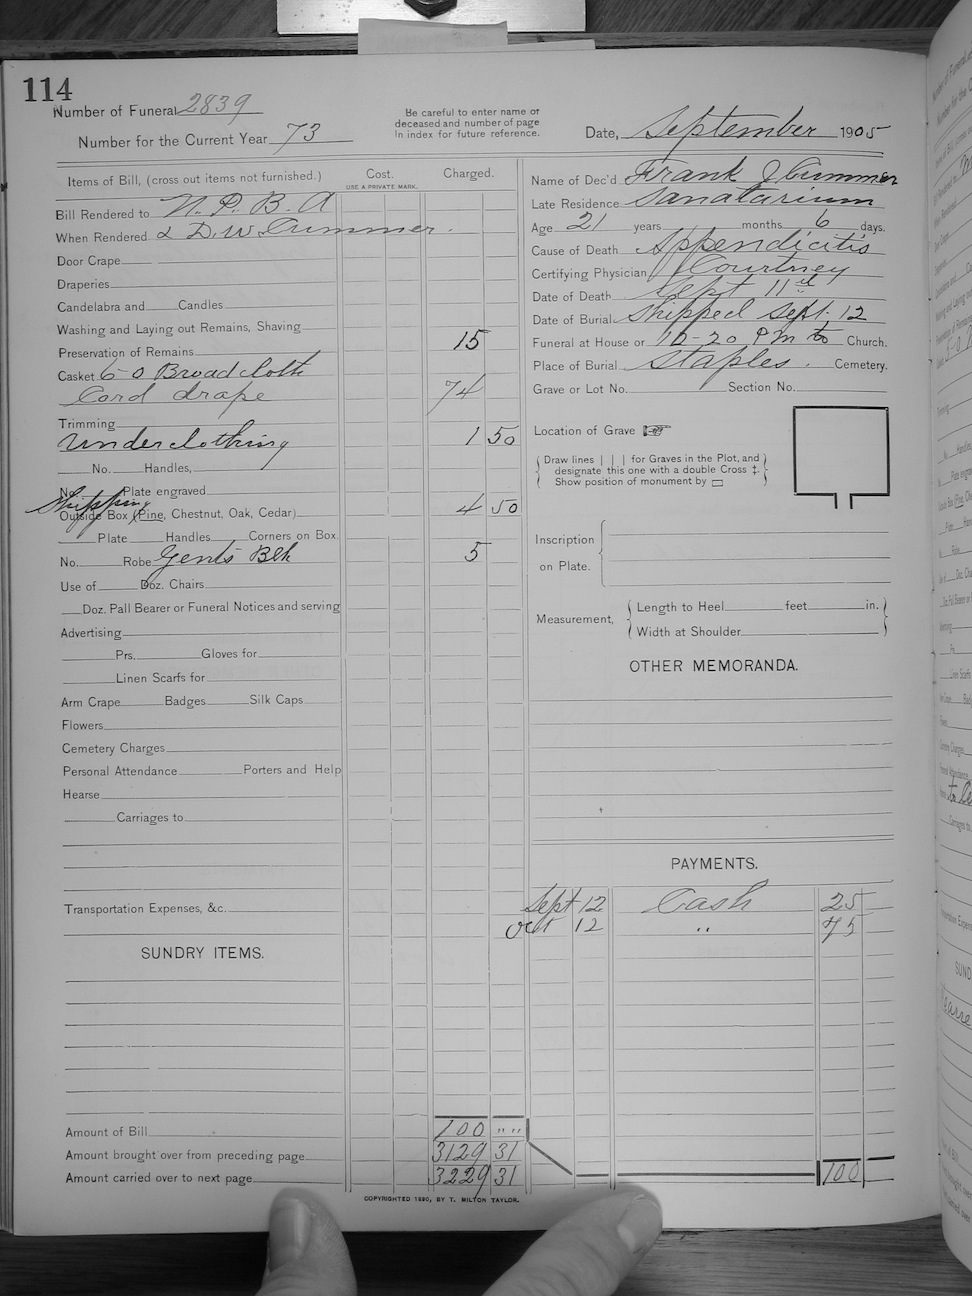 114
Number of Funeral 2839
Number for the Current Year 73
Be careful to enter name of
deceased and number of page
in index for future reference.
Date, September 1905
Items of Bill, (cross out items not furnished.)
Cost.
USE A PRIVATE MARK.
Charged.
Bill Rendered to N. P. B. A
When Rendered & D. W. Cummer.
Door Crape
Draperies
Candelabra and Candles
Washing and Laying out Remains, Shaving
Preservation of Remains 15
Casket 6-0 Broadcloth
Cord drape 74
Trimming
Underclothing 1 50
No. Handles,
No. Plate engraved
Shipping
Outside Box (Pine, Chestnut, Oak, Cedar) 4 50
Plate Handles Corners on Box.
No. Robe Gents Blk 5
Use of Doz. Chairs
Doz. Pall Bearer or Funeral Notices and serving
Advertising
Prs. Gloves for
Linen Scarfs for
Arm Crape Badges Silk Caps
Flowers
Cemetery Charges
Personal Attendance Porters and Help
Hearse
Carriages to
Transportation Expenses, &c.
SUNDRY ITEMS.
Amount of Bill 100 " "
Amount brought over from preceding page 3129 31
Amount carried over to next page 3229 31
Name of Dec'd Frank J Cummer
Late Residence Sanatarium
Age 21 years months 6 days.
Cause of Death Appendicitis
Certifying Physician Courtney
Date of Death Sept 11th
Date of Burial Shipped Sept. 12
Funeral at House or 10-20 P m to Church.
Place of Burial Staples. Cemetery.
Grave or Lot No. Section No.
Location of Grave
Draw lines | | | for Graves in the Plot, and
designate this one with a double Cross ‡.
Show position of monument by
Inscription
on Plate.
Measurement,
Length to Heel feet in.
Width at Shoulder
OTHER MEMORANDA.
PAYMENTS.
Sept 12 Cash 25
Oct 12 " 75
100
COPYRIGHTED 1890, BY T. MILTON TAYLOR.